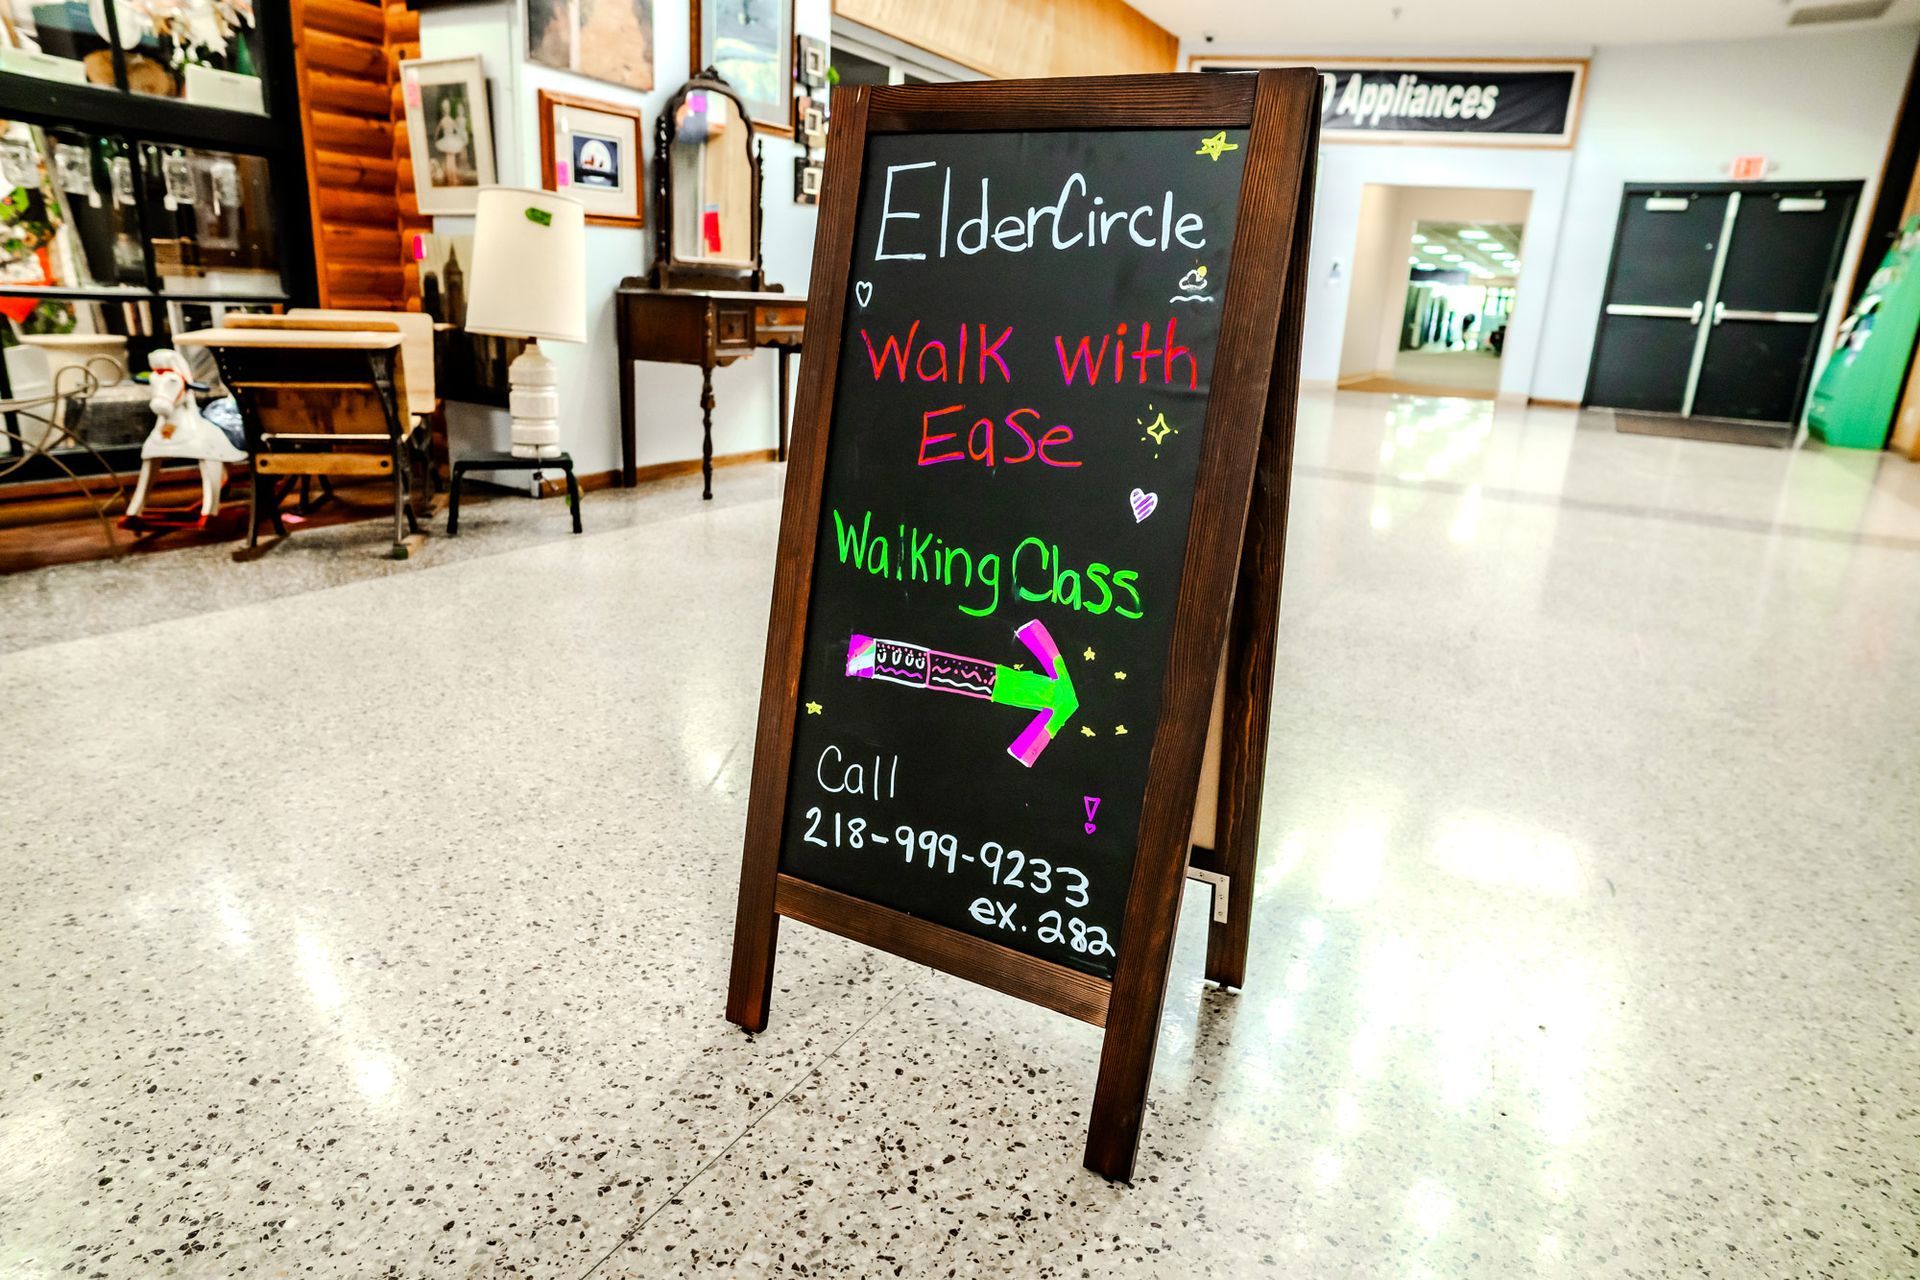 ElderCircle
Walk with
Ease
Walking Class
Call
218-999-9233
ex. 282
Appliances